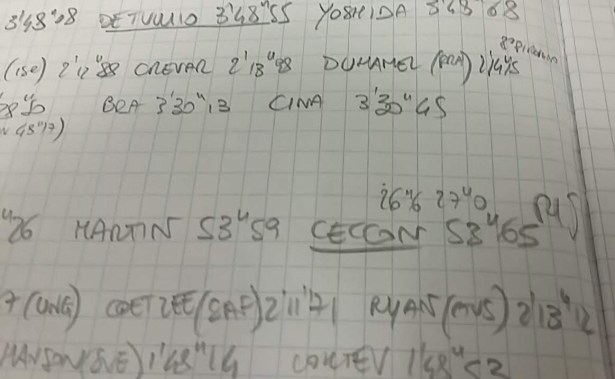 3'48"08 DETULLIO 3'48"55 YOSHIDA 3'48"68
8° PILATO
(ISR) 2'12"88 CREVAR 2'13"98 DUHAMEL (FRA) 2'14"5
BRA 3'30"13 CINA 3'30"45
26"6 27"0
"26 MARTIN 53"59 CECCON 53"65
7 (UNG) COETZEE (SAF) 2'11"71 RYAN (AUS) 2'13"12
HANSON (SVE) 1'48"14 1'48"52